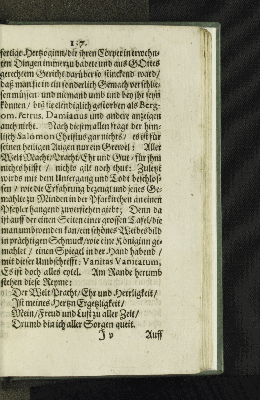 137.
fertige Hertzoginn/die ihren Cörper in erwehn-
ten Dingen immerzu badete und aus GOttes
gerechtem Gericht darüber so stinckend ward/
daß man sie in ein sonderlich Gemach verschlies-
sen müssen/ und niemand umb und bey ihr seyn
können / biß sie elendiglich gestorben als Berg-
om. Petrus, Damianus und andere anzeigen
auch nicht. Nach diesem allen fragt der him-
lisch Salomon Christus gar nichts/ es ist für
seinen heiligen Augen nur ein Grewel: Aller
Welt Macht/ Pracht/ Ehr und Gut/ für ihm
nuches hilfft / nichts gilt noch thut: Zuletzt
wirds mit dem Untergang und Todt beschlos-
sen / wie die Erfahrung bezeugt und jenes Ge-
mählte zu Minden in der Pfarkirchen an einen
Pfeyler hangend zuverstehen giebt; Denn da
ist auff der einen Seiten einer grossen Tafel/ die
man umbwenden kan/ ein schönes Weibesbild
in prächtigem Schmuck/ wie eine Königinn ge-
mahlet / einen Spiegel in der Hand habend /
mit dieser Umbschrifft: Vanitas Vanitatum,
Es ist doch alles eytel. Am Rande herumb
stehen diese Reyme:
Der Welt Pracht/ Ehr und Herrligkeit/
Ist meines Hertzn Ergetzligkeit/
Mein/ Freud und Lust zu aller Zeit/
Drumb bin ich aller Sorgen queit.
J v Auff